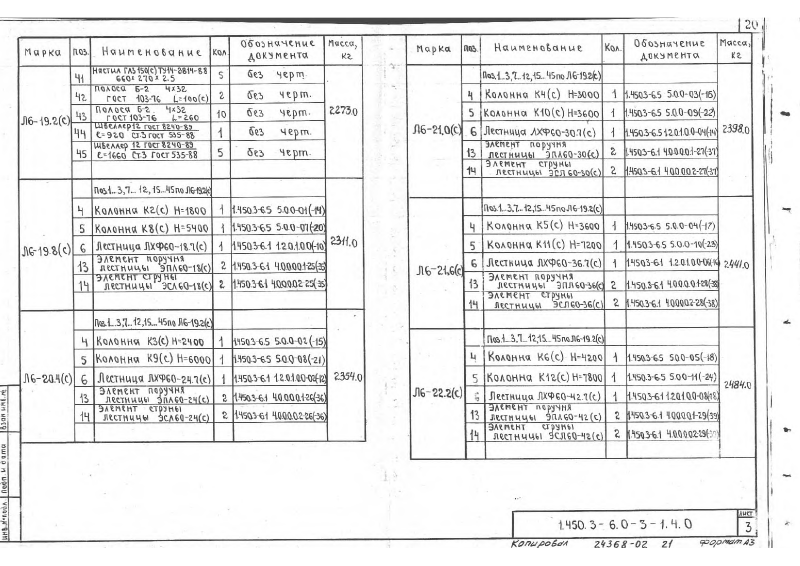 20
Марка поз. Наименование Кол. Обозначение документа Масса, кг
Л6-19.2(с) 2273.0
41 Настил ГЛ3 150(с) ТУ14-2814-88 660×270×2.5 5 без черт.
42 Полоса Б-2 4×32 ГОСТ 103-76 L=100(с) 2 без черт.
43 Полоса Б-2 4×32 ГОСТ 103-76 L=260 10 без черт.
44 Швеллер 12 ГОСТ 8240-89 ℓ=920 Ст3 ГОСТ 535-88 1 без черт.
45 Швеллер 12 ГОСТ 8240-89 ℓ=1660 Ст3 ГОСТ 535-88 5 без черт.
Л6-19.8(с) 2311.0
Поз.1...3,7...12,15...45 по Л6-19.2(с)
4 Колонна К2(с) Н=1800 1 1.450.3-6.5 5.0.0-01(-14)
5 Колонна К8(с) Н=5400 1 1.450.3-6.5 5.0.0-07(-20)
6 Лестница ЛХФ60-18.7(с) 1 1.450.3-6.1 1.2.0.1.00(-10)
13 Элемент поручня лестницы ЭПЛ60-18(с) 2 1.450.3-6.1 4.0.0.00.1-25(35)
14 Элемент струны лестницы ЭСЛ60-18(с) 2 1.450.3-6.1 4.0.0.00.2-25(35)
Л6-20.4(с) 2354.0
Поз.1...3,7...12,15...45 по Л6-19.2(с)
4 Колонна К3(с) Н=2400 1 1.450.3-6.5 5.0.0-02(-15)
5 Колонна К9(с) Н=6000 1 1.450.3-6.5 5.0.0-08(-21)
6 Лестница ЛХФ60-24.7(с) 1 1.450.3-6.1 1.2.0.1.00-02(-12)
13 Элемент поручня лестницы ЭПЛ60-24(с) 2 1.450.3-6.1 4.0.0.00.1-26(36)
14 Элемент струны лестницы ЭСЛ60-24(с) 2 1.450.3-6.1 4.0.0.00.2-26(36)
Марка поз. Наименование Кол. Обозначение документа Масса, кг
Л6-21.0(с) 2398.0
Поз.1...3,7...12,15...45 по Л6-19.2(с)
4 Колонна К4(с) Н=3000 1 1.450.3-6.5 5.0.0-03(-15)
5 Колонна К10(с) Н=3600 1 1.450.3-6.5 5.0.0-09(-22)
6 Лестница ЛХФ60-30.7(с) 1 1.450.3-6.5 1.2.0.1.00-04(-14)
13 Элемент поручня лестницы ЭПЛ60-30(с) 2 1.450.3-6.1 4.0.0.00.1-27(37)
14 Элемент струны лестницы ЭСЛ60-30(с) 2 1.450.3-6.1 4.0.0.00.2-27(37)
Л6-21.6(с) 2441.0
Поз.1...3,7...12,15...45 по Л6-19.2(с)
4 Колонна К5(с) Н=3600 1 1.450.3-6.5 5.0.0-04(-17)
5 Колонна К11(с) Н=7200 1 1.450.3-6.5 5.0.0-10(-23)
6 Лестница ЛХФ60-36.7(с) 1 1.450.3-6.1 1.2.0.1.00-06(-16)
13 Элемент поручня лестницы ЭПЛ60-36(с) 2 1.450.3-6.1 4.0.0.00.1-28(38)
14 Элемент струны лестницы ЭСЛ60-36(с) 2 1.450.3-6.1 4.0.0.00.2-28(38)
Л6-22.2(с) 2484.0
Поз.1...3,7...12,15...45 по Л6-19.2(с)
4 Колонна К6(с) Н=4200 1 1.450.3-6.5 5.0.0-05(-18)
5 Колонна К12(с) Н=7800 1 1.450.3-6.5 5.0.0-11(-24)
6 Лестница ЛХФ60-42.7(с) 1 1.450.3-6.1 1.2.0.1.00-08(-18)
13 Элемент поручня лестницы ЭПЛ60-42(с) 2 1.450.3-6.1 4.0.0.00.1-29(39)
14 Элемент струны лестницы ЭСЛ60-42(с) 2 1.450.3-6.1 4.0.0.00.2-29(39)
Инв.№подл. Подп. и дата Взам.инв.№
1.450.3-6.0-3-1.4.0
Лист
3
Копировал 24368-02 21 Формат А3